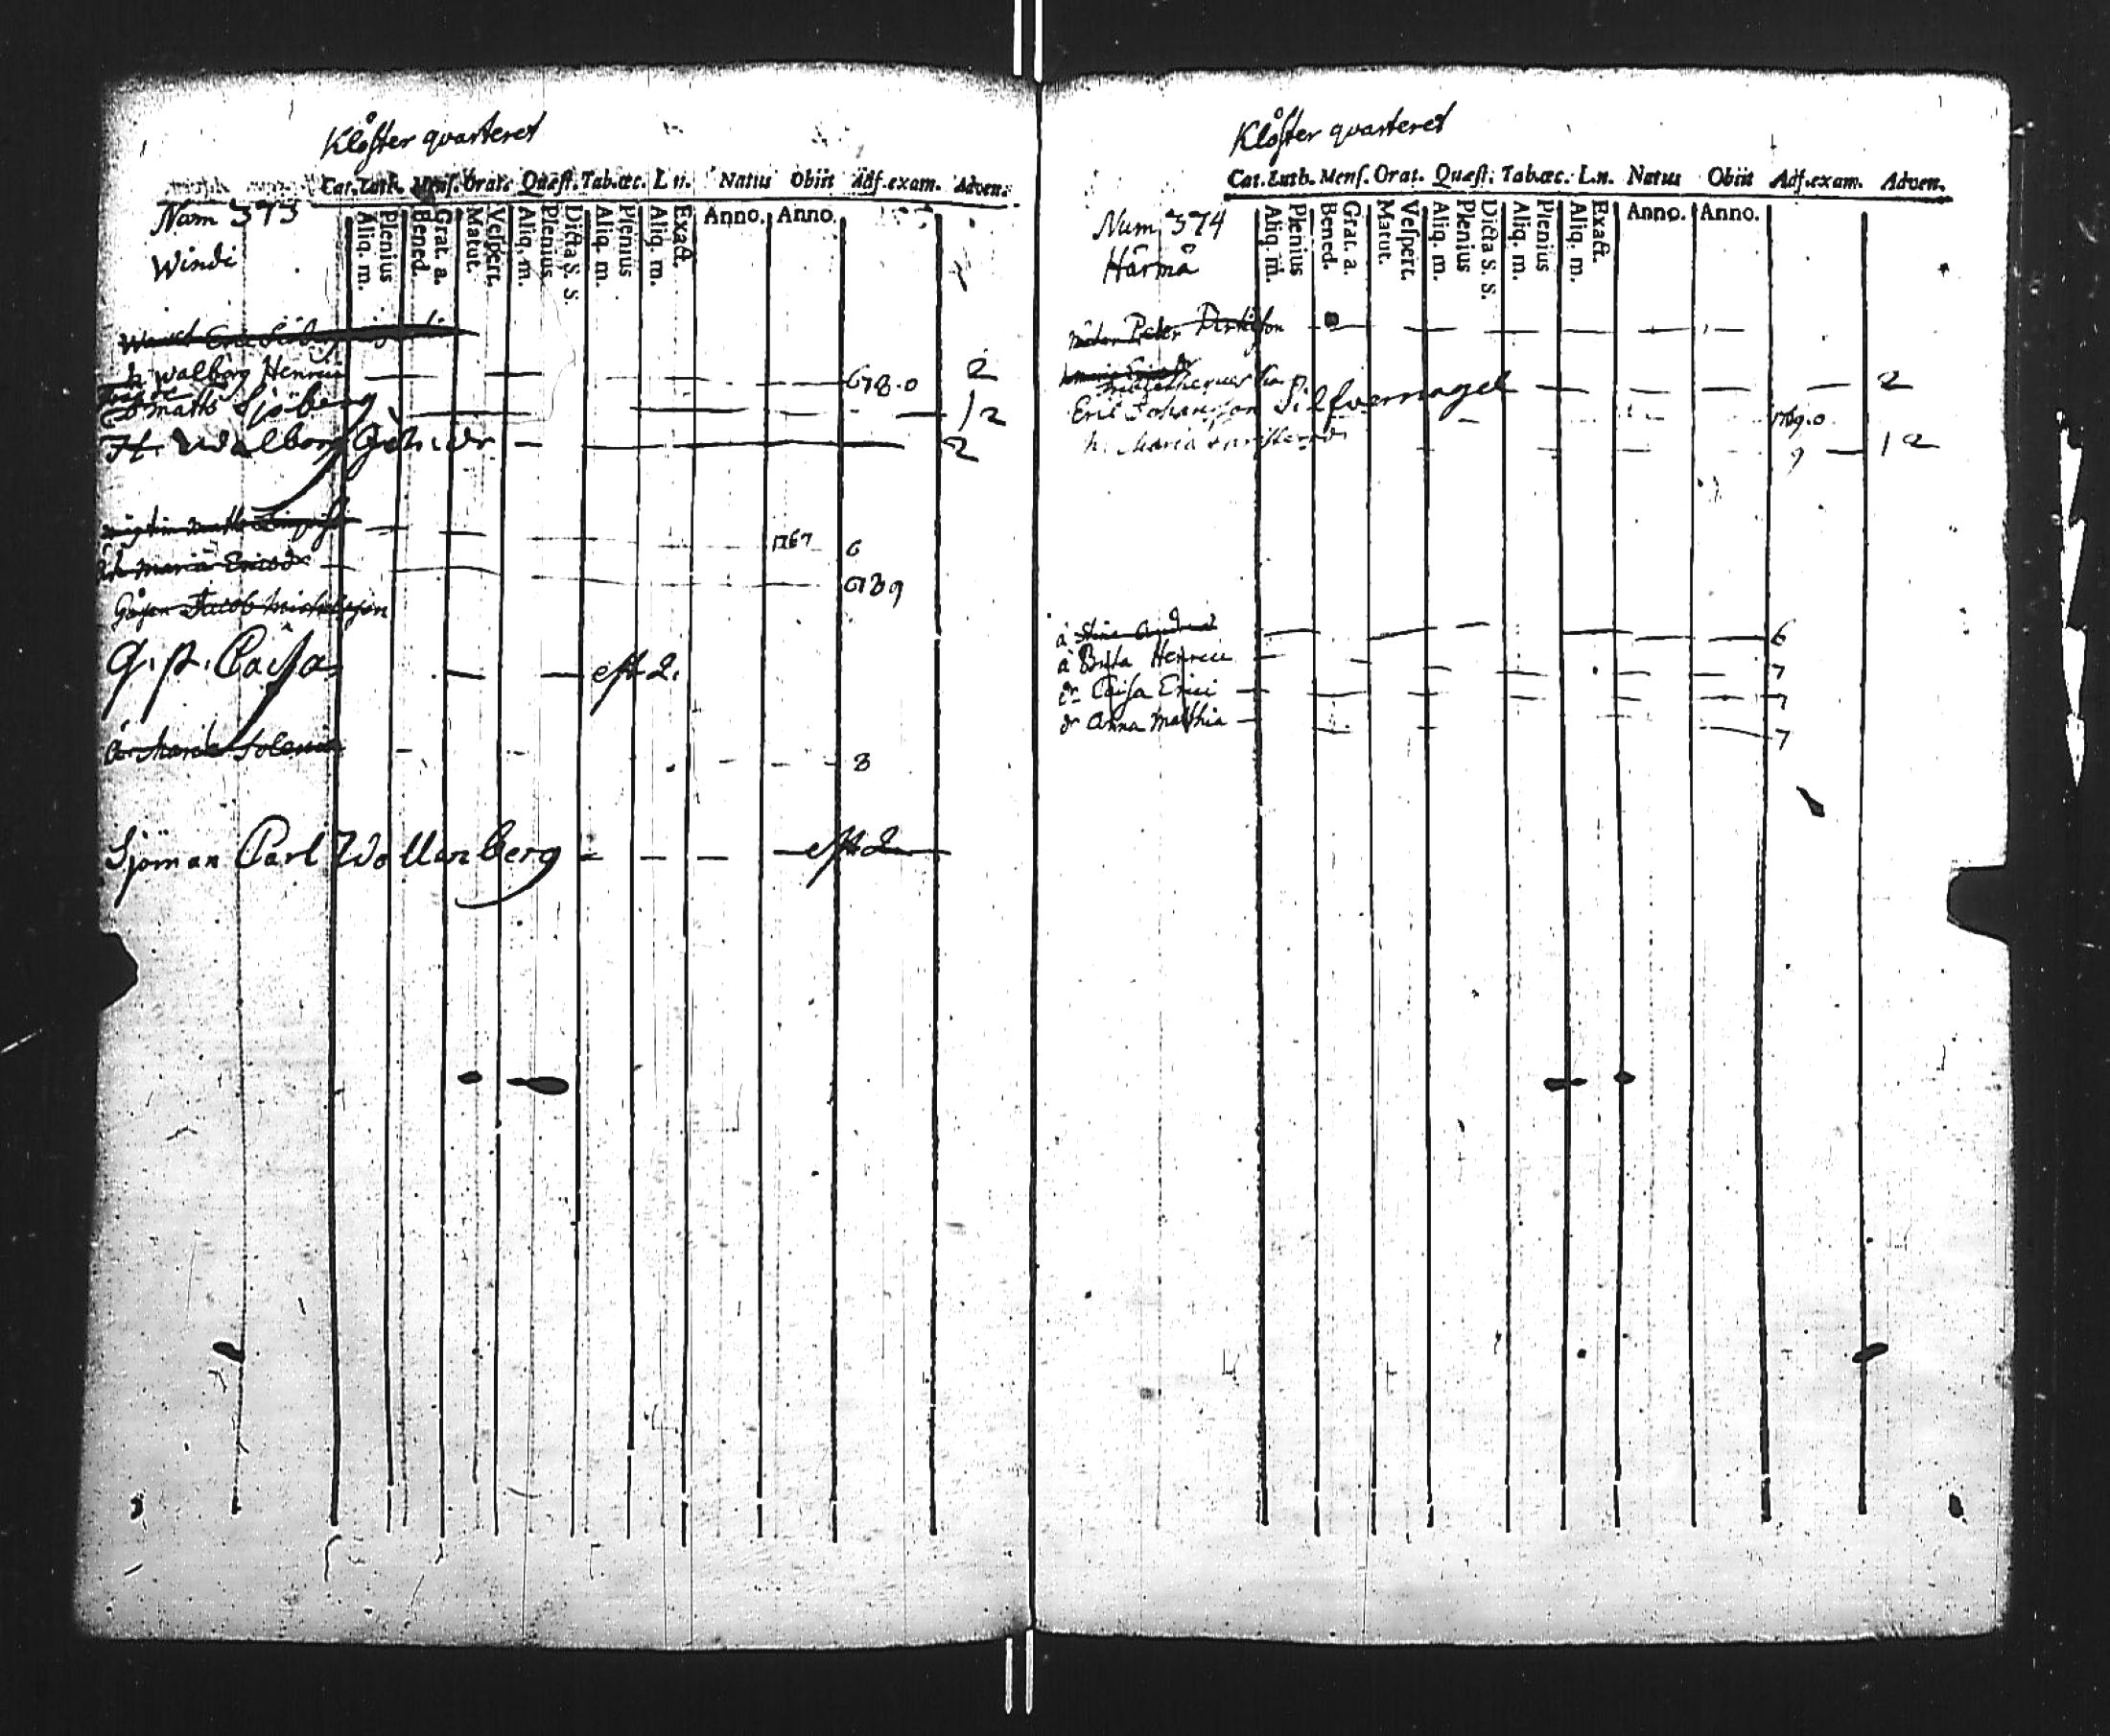 Klöster quarteret
Cat. Luth. Mens. Orat. Quæst. Tab.œc. L.n. Natus Obiit Adf.exam. Adven.
Num 373
Aliq. m. Plenius Bened. Grat. a. Matut. Vespert. Aliq. m. Plenius Dicta S. S. Aliq. m. Plenius Aliq. m. Exact. Anno. Anno.
Windi
h Walborg Henrici 678.0 2
Matts Sjöberg 12
H. Walborg 2
1767 6
h Maria Ericsdr 6789
Jacob Michelsson
G. p. Caisa est 2.
8
Sjöman Carl Wollanberg est 2
Klöster quarteret
Cat. Luth. Mens. Orat. Quæst. Tab.œc. L.n. Natus Obiit Adf.exam. Adven.
Num 374
Aliq. m. Plenius Bened. Grat. a. Matut. Vespert. Aliq. m. Plenius Dicta S. S. Aliq. m. Plenius Aliq. m. Exact. Anno. Anno.
Härmä
Peter
Eric Johansson Silfvernagel 2
1769.0
h. Maria 9 12
à Stina 6
à Brita Henrici 7
dr Caisa Erici 7
dr Anna Mathia 7